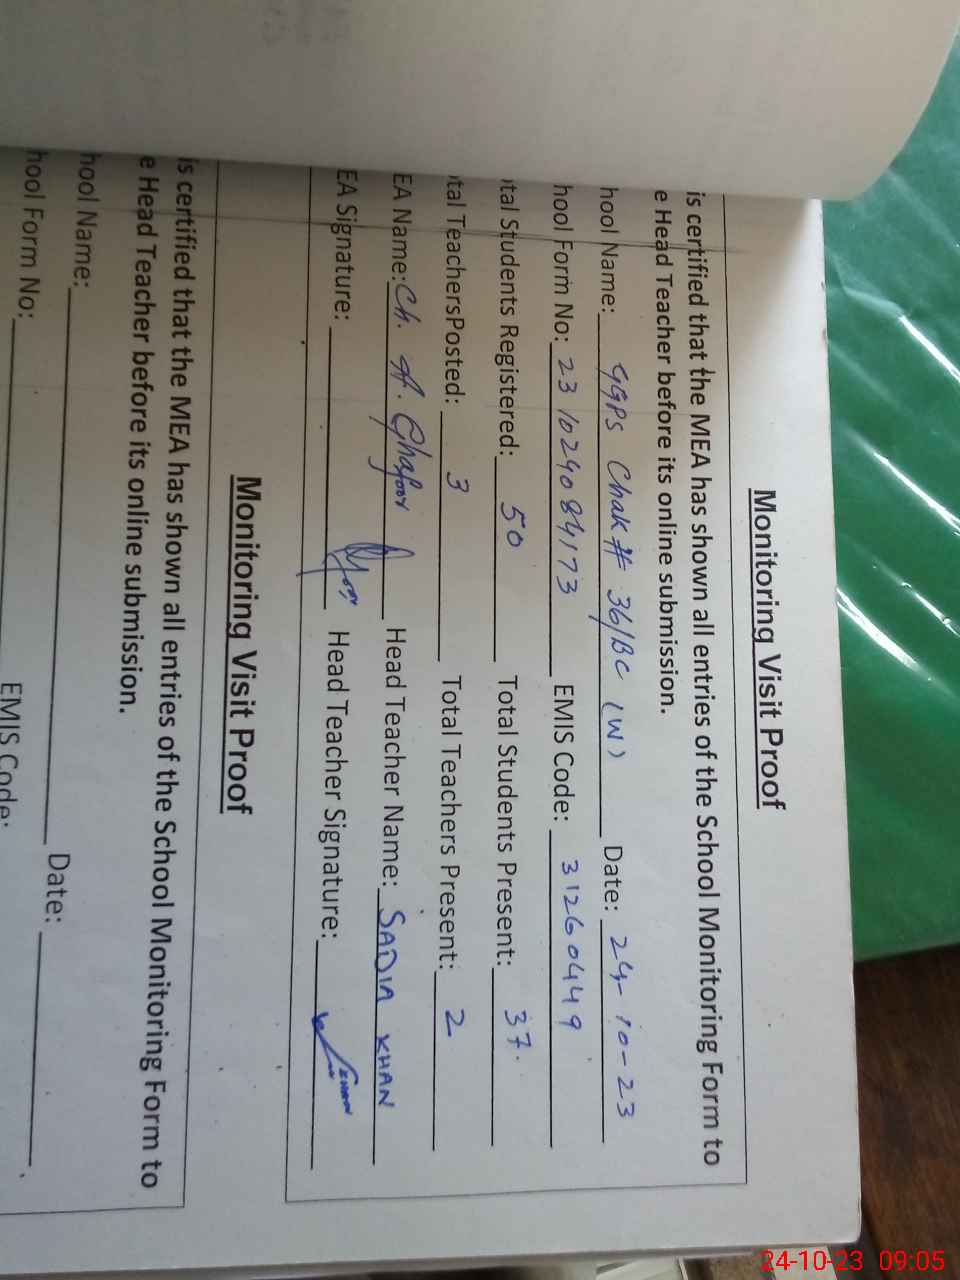 Monitoring Visit Proof
is certified that the MEA has shown all entries of the School Monitoring Form to
e Head Teacher before its online submission.
hool Name: GGPS Chak # 36/BC (W) Date: 24-10-23
hool Form No: 231024084173 EMIS Code: 31260449
tal Students Registered: 50 Total Students Present: 37.
tal TeachersPosted: 3 Total Teachers Present: 2
EA Name: Ch. A. Ghafoor Head Teacher Name: SADIA KHAN
EA Signature: Head Teacher Signature:
Monitoring Visit Proof
is certified that the MEA has shown all entries of the School Monitoring Form to
e Head Teacher before its online submission.
hool Name: Date:
hool Form No: EMIS Code:
24-10-23 09:05